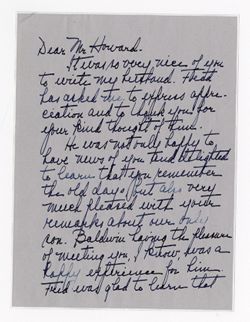 Dear Mr. Howard.
It was so very nice of you
to write my husband. Fred
has asked me to express appre-
ciation and to thank you for
your kind thought of him.
He was not only happy to
have news of you and delighted
to learn that you remember
the old days but also very
much pleased with your
remarks about our only
son. Baldwin having the pleasure
of meeting you, I know, was a
happy experience for him
Fred was glad to learn that